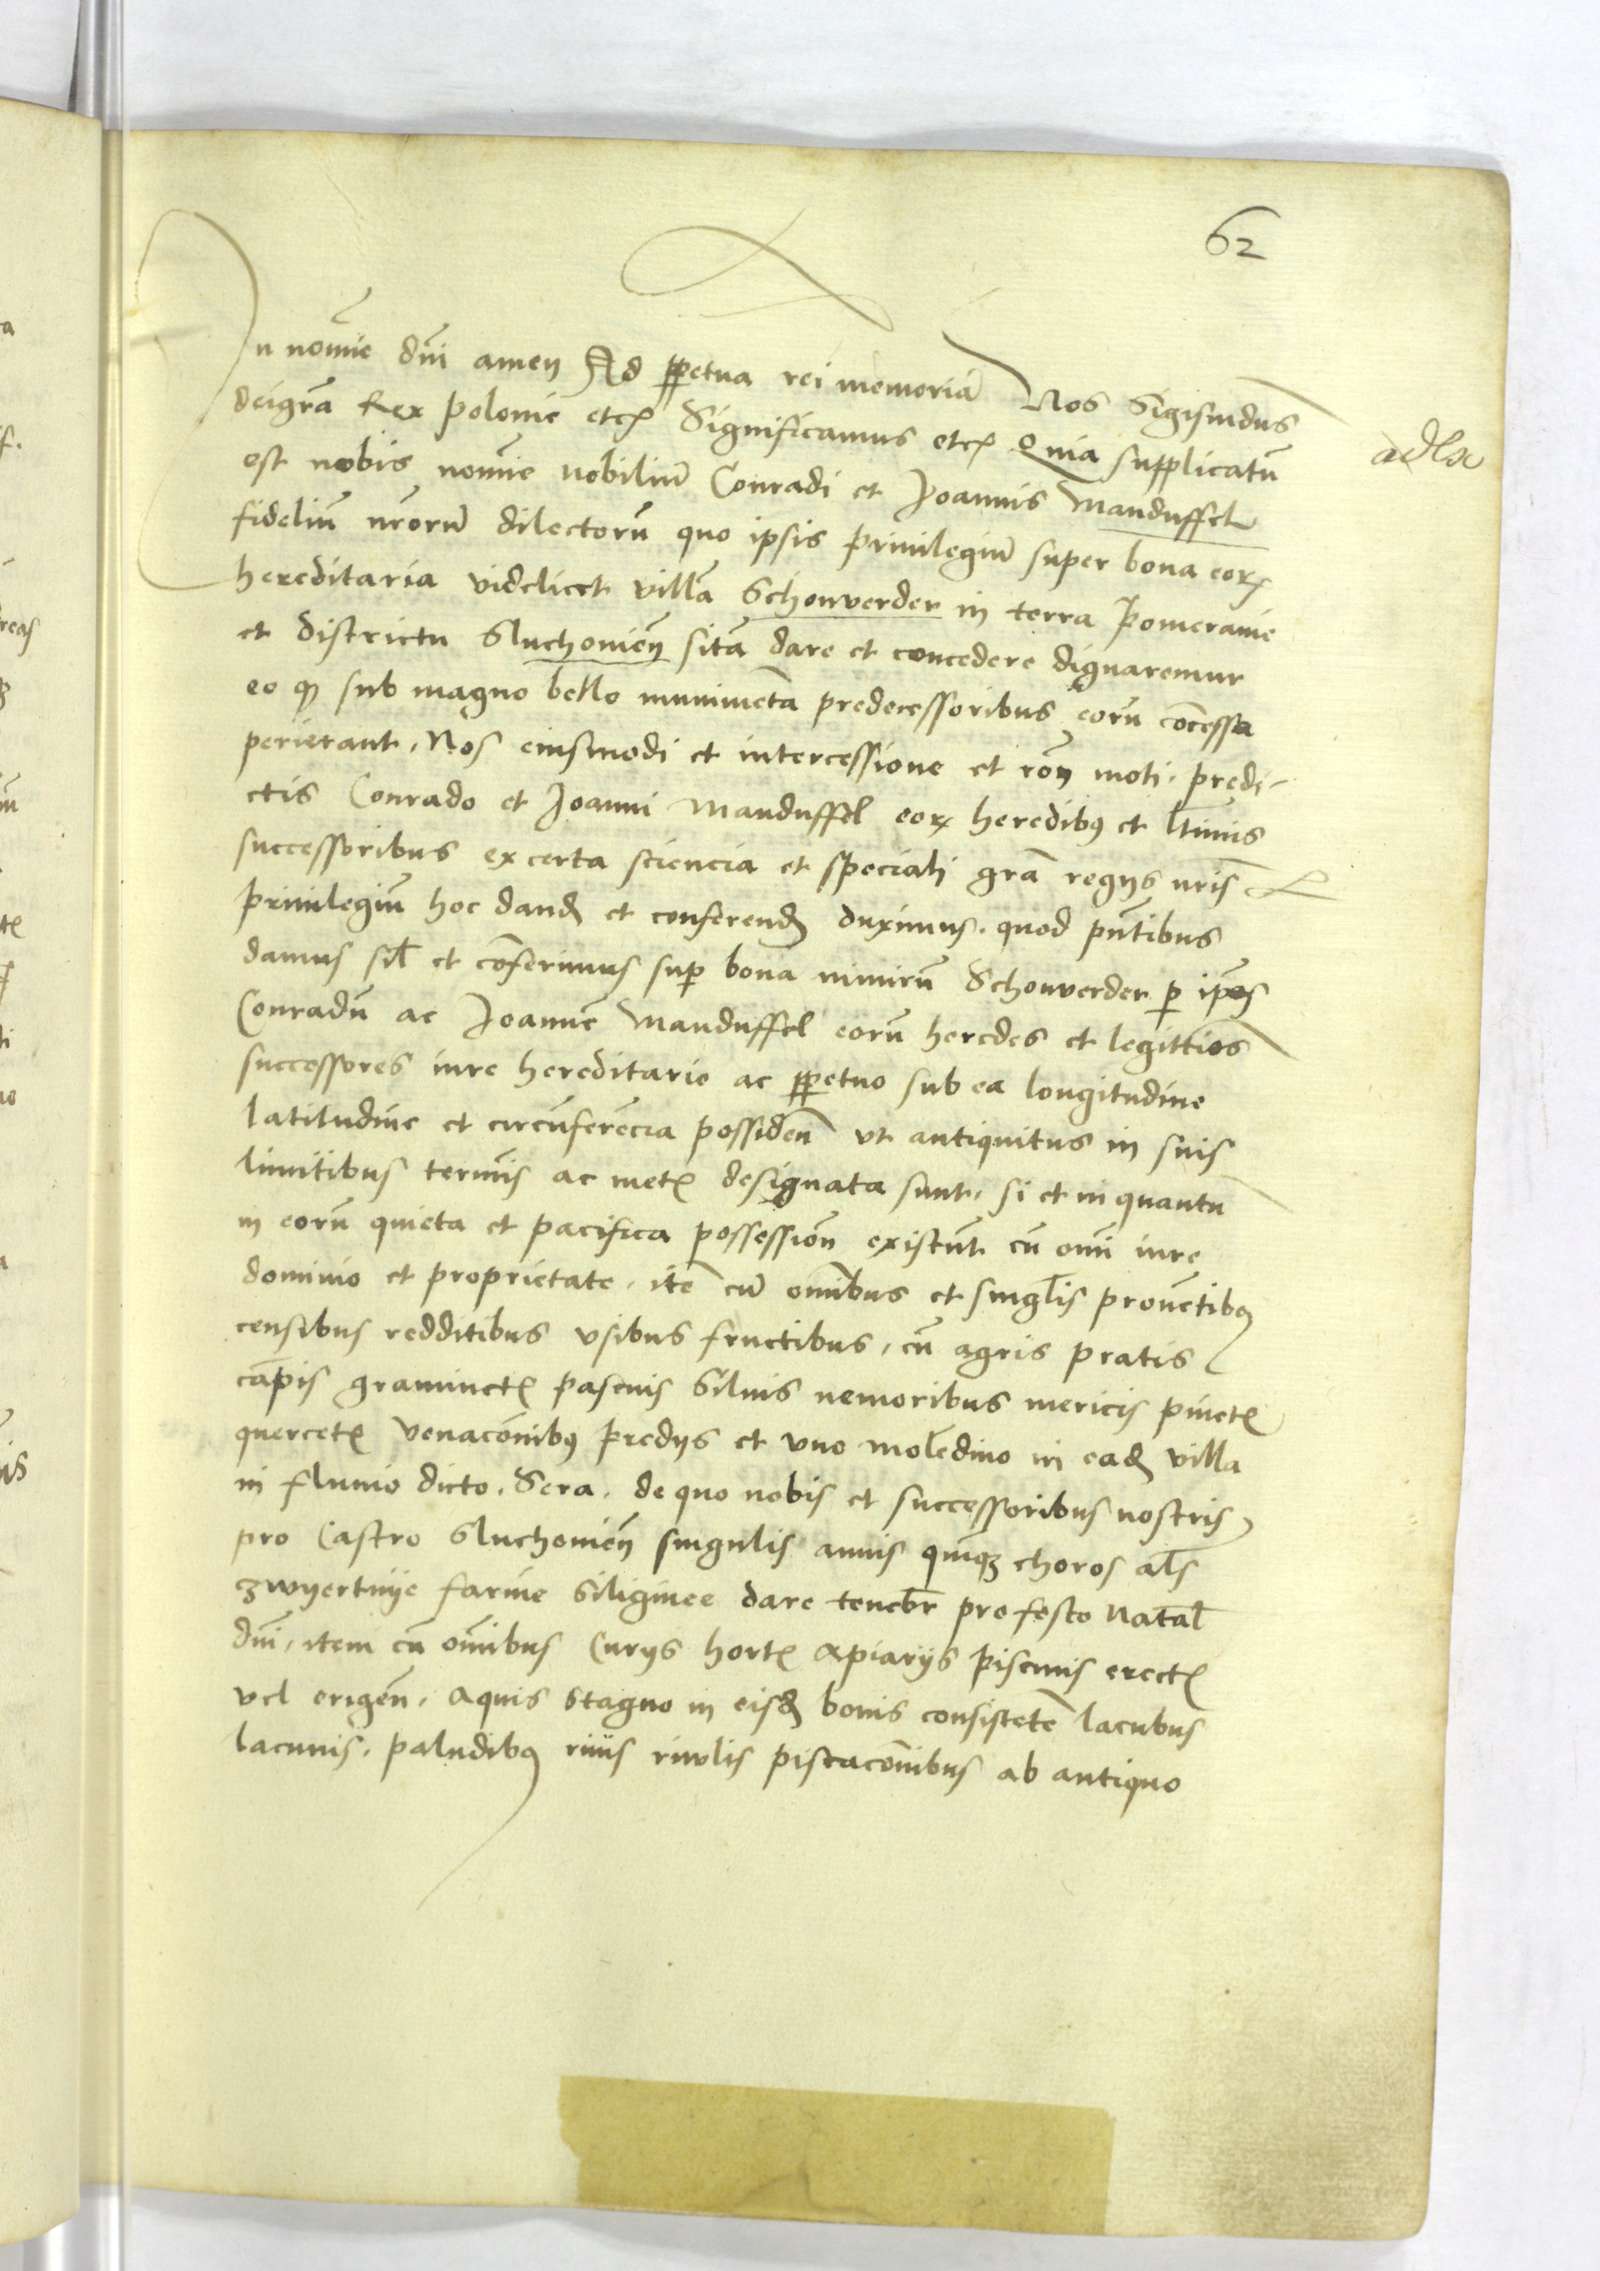 62
In nomīe dnī amen Ad ꝑpetua rei memoriā Nos Sigismdus
deigrā Rex Polonie etcꝭ Significamus etcꝭ Quia supplicatū
est nobis nomīe nobiliū Conradi et Joannis Manduffel
fideliū nrōrū dilectorū quo ipsis priuilegiū super bona eorꝝ
hereditaria videlicet villā Schonverder in terra Pomeranie
et districtu Sluchonieñ sitā dare et concedere dignaremur
eo ꝙ sub magno bello munimēta predecessoribus eorū cōcessa
perierant. Nos eiusmodi et intercessione et rōn moti. predi-
ctis Conrado et Joanni Manduffel eorꝝ heredibꝰ et ltīmis
successoribus ex certa sciencia et speciali grā regijs nrīs
priuilegiū hoc dandꝫ et conferendꝫ duximus. quod pn̄tibus
damus sil̄ et cōferimus suꝑ bona nimirū Schonverder ꝑ ip̄os
Conradū ac Joannē Manduffel eorū heredes et legittīos
successores iure hereditario ac ꝑpetuo sub ea longitudine
latitudine et circūferēcia possidēn̄ vt antiquitus in suis
limitibus termīs ac metꝭ designata sunt. si et in quantu
in eorū quieta et pacifica possessiōn existūt cū om̄i iure
dominio et proprietate. itē cū om̄ibus et singl̄is prouētibꝰ
censibus redditibus vsibus fructibus, cū agris pratis
cāpis graminetꝭ pascuis siluis nemoribus mericis pinetꝭ
quercetꝭ venacōnibꝰ predijs et vno molēdino in eadꝫ villa
in fluuio dicto. Sera. de quo nobis et successoribus nostris
pro Castro Sluchonieñ singulis annis quīqꝫ choros al̄s
zwyertnije farine siliginee dare tenebr̄ pro festo Natal̄
dnī, item cū om̄ibus Curijs hortꝭ Apiarijs piscinis erectꝭ
vel erigēn̄, Aquis stagno in eisdꝫ bonis consistētē lacubus
lacunis. paludibꝰ riuis riuvlis piscacōnibus ab antiquo